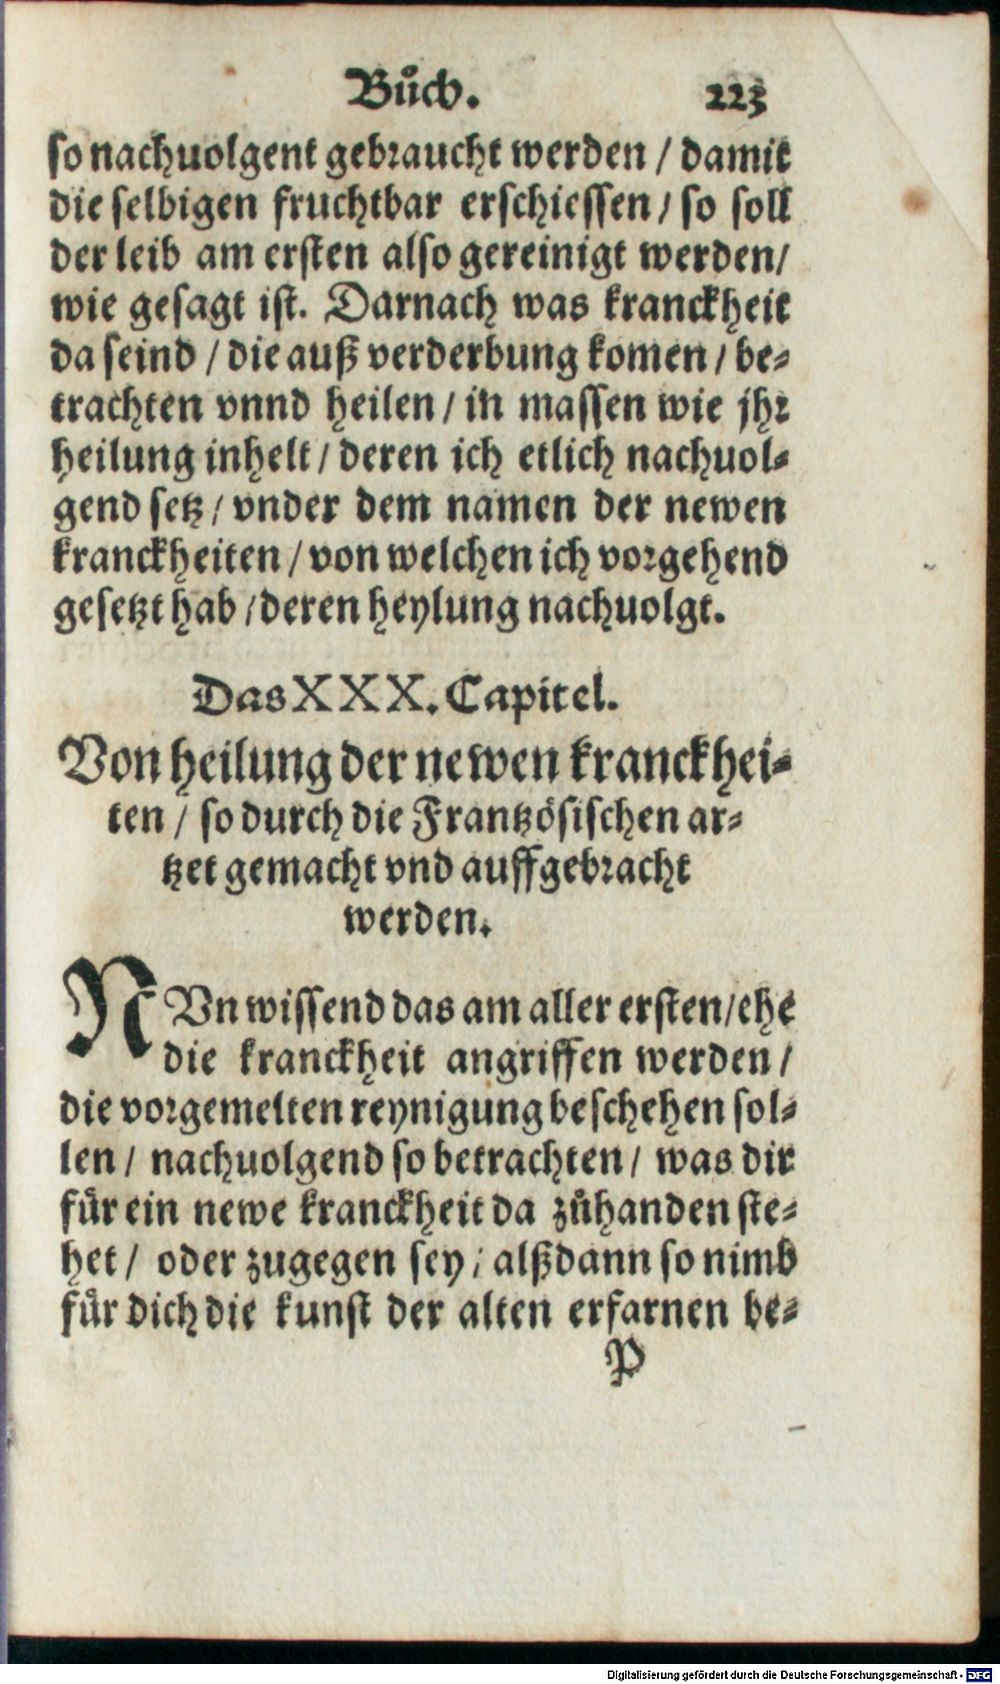 Bůch. 223
so nachuolgent gebraucht werden / damit
die selbigen fruchtbar erschiessen / so soll
der leib am ersten also gereinigt werden /
wie gesagt ist. Darnach was kranckheit
da seind / die auß verderbung komen / be-
trachten vnnd heilen / in massen wie jhr
heilung inhelt / deren ich etlich nachuol-
gend setz / vnder dem namen der newen
kranckheiten / von welchen ich vorgehend
gesetzt hab / deren heylung nachuolgt.
Das XXX. Capitel.
Von heilung der newen kranckhei-
ten / so durch die Frantzösischen ar-
tzet gemacht vnd auffgebracht
werden.
NVn wissend das am aller ersten / ehe
die kranckheit angriffen werden /
die vorgemelten reynigung beschehen sol-
len / nachuolgend so betrachten / was dir
für ein newe kranckheit da zůhanden ste-
het / oder zugegen sey / alßdann so nimb
für dich die kunst der alten erfarnen be-
P
Digitalisierung gefördert durch die Deutsche Forschungsgemeinschaft - DFG